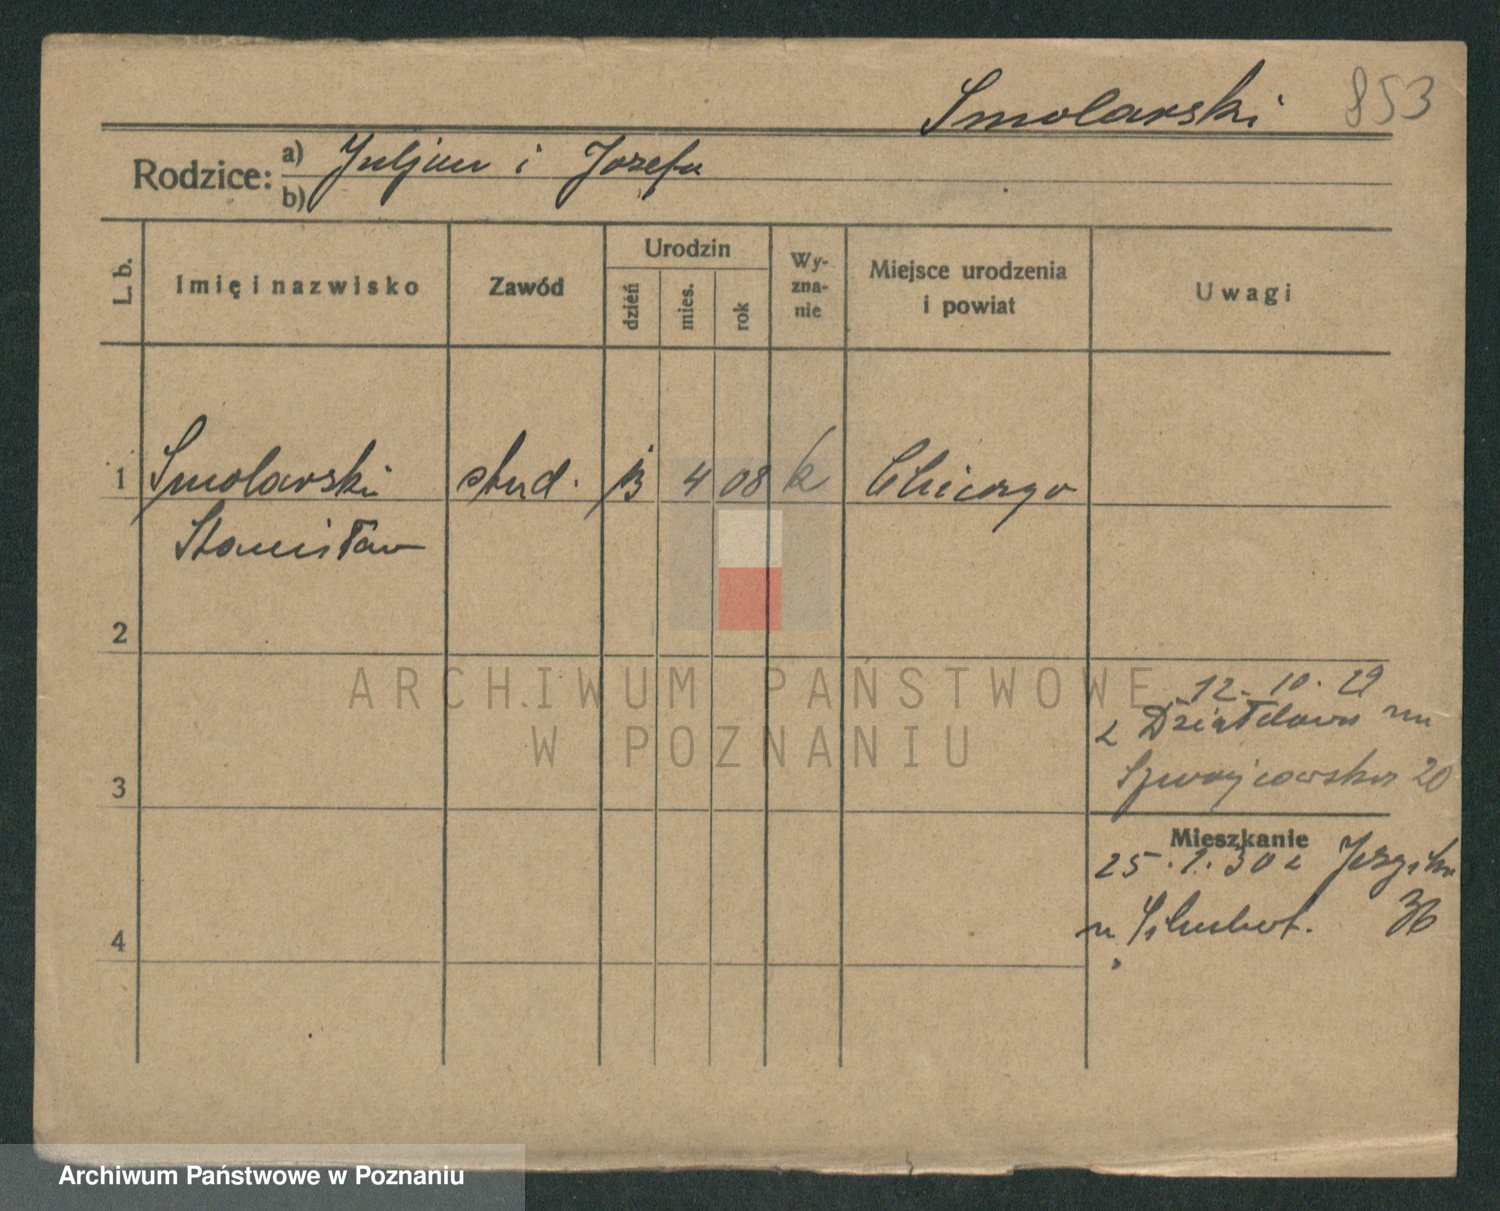 Smolarski 853
Rodzice: a) Juljan i Józefa
b)
L. b.
Imię i nazwisko
Zawód
Urodzin
dzień
mies.
rok
Wy-
zna-
nie
Miejsce urodzenia
i powiat
Uwagi
1 Smolarski stud. 13 4 08 k Chicago
Stanisław
2
12. 10. 29
z Działdowa
20
3
Mieszkanie
25.1.30 z
36
4
ARCHIWUM PAŃSTWOWE
W POZNANIU
Archiwum Państwowe w Poznaniu